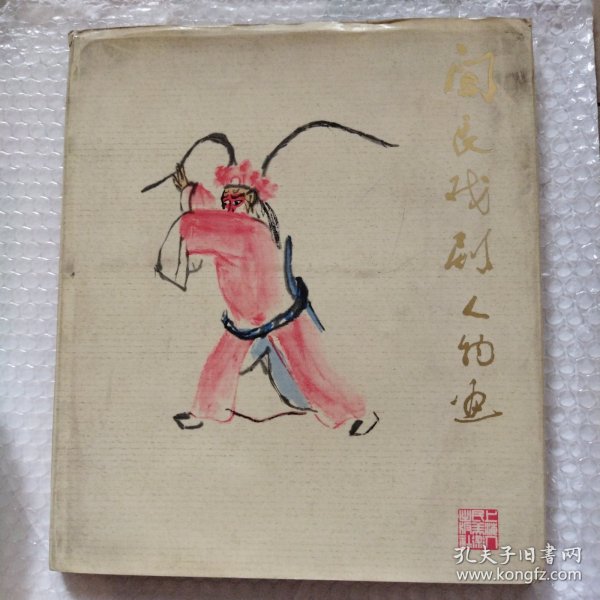 関良戏剧人物画
孔夫子旧书网
www.kongfz.com